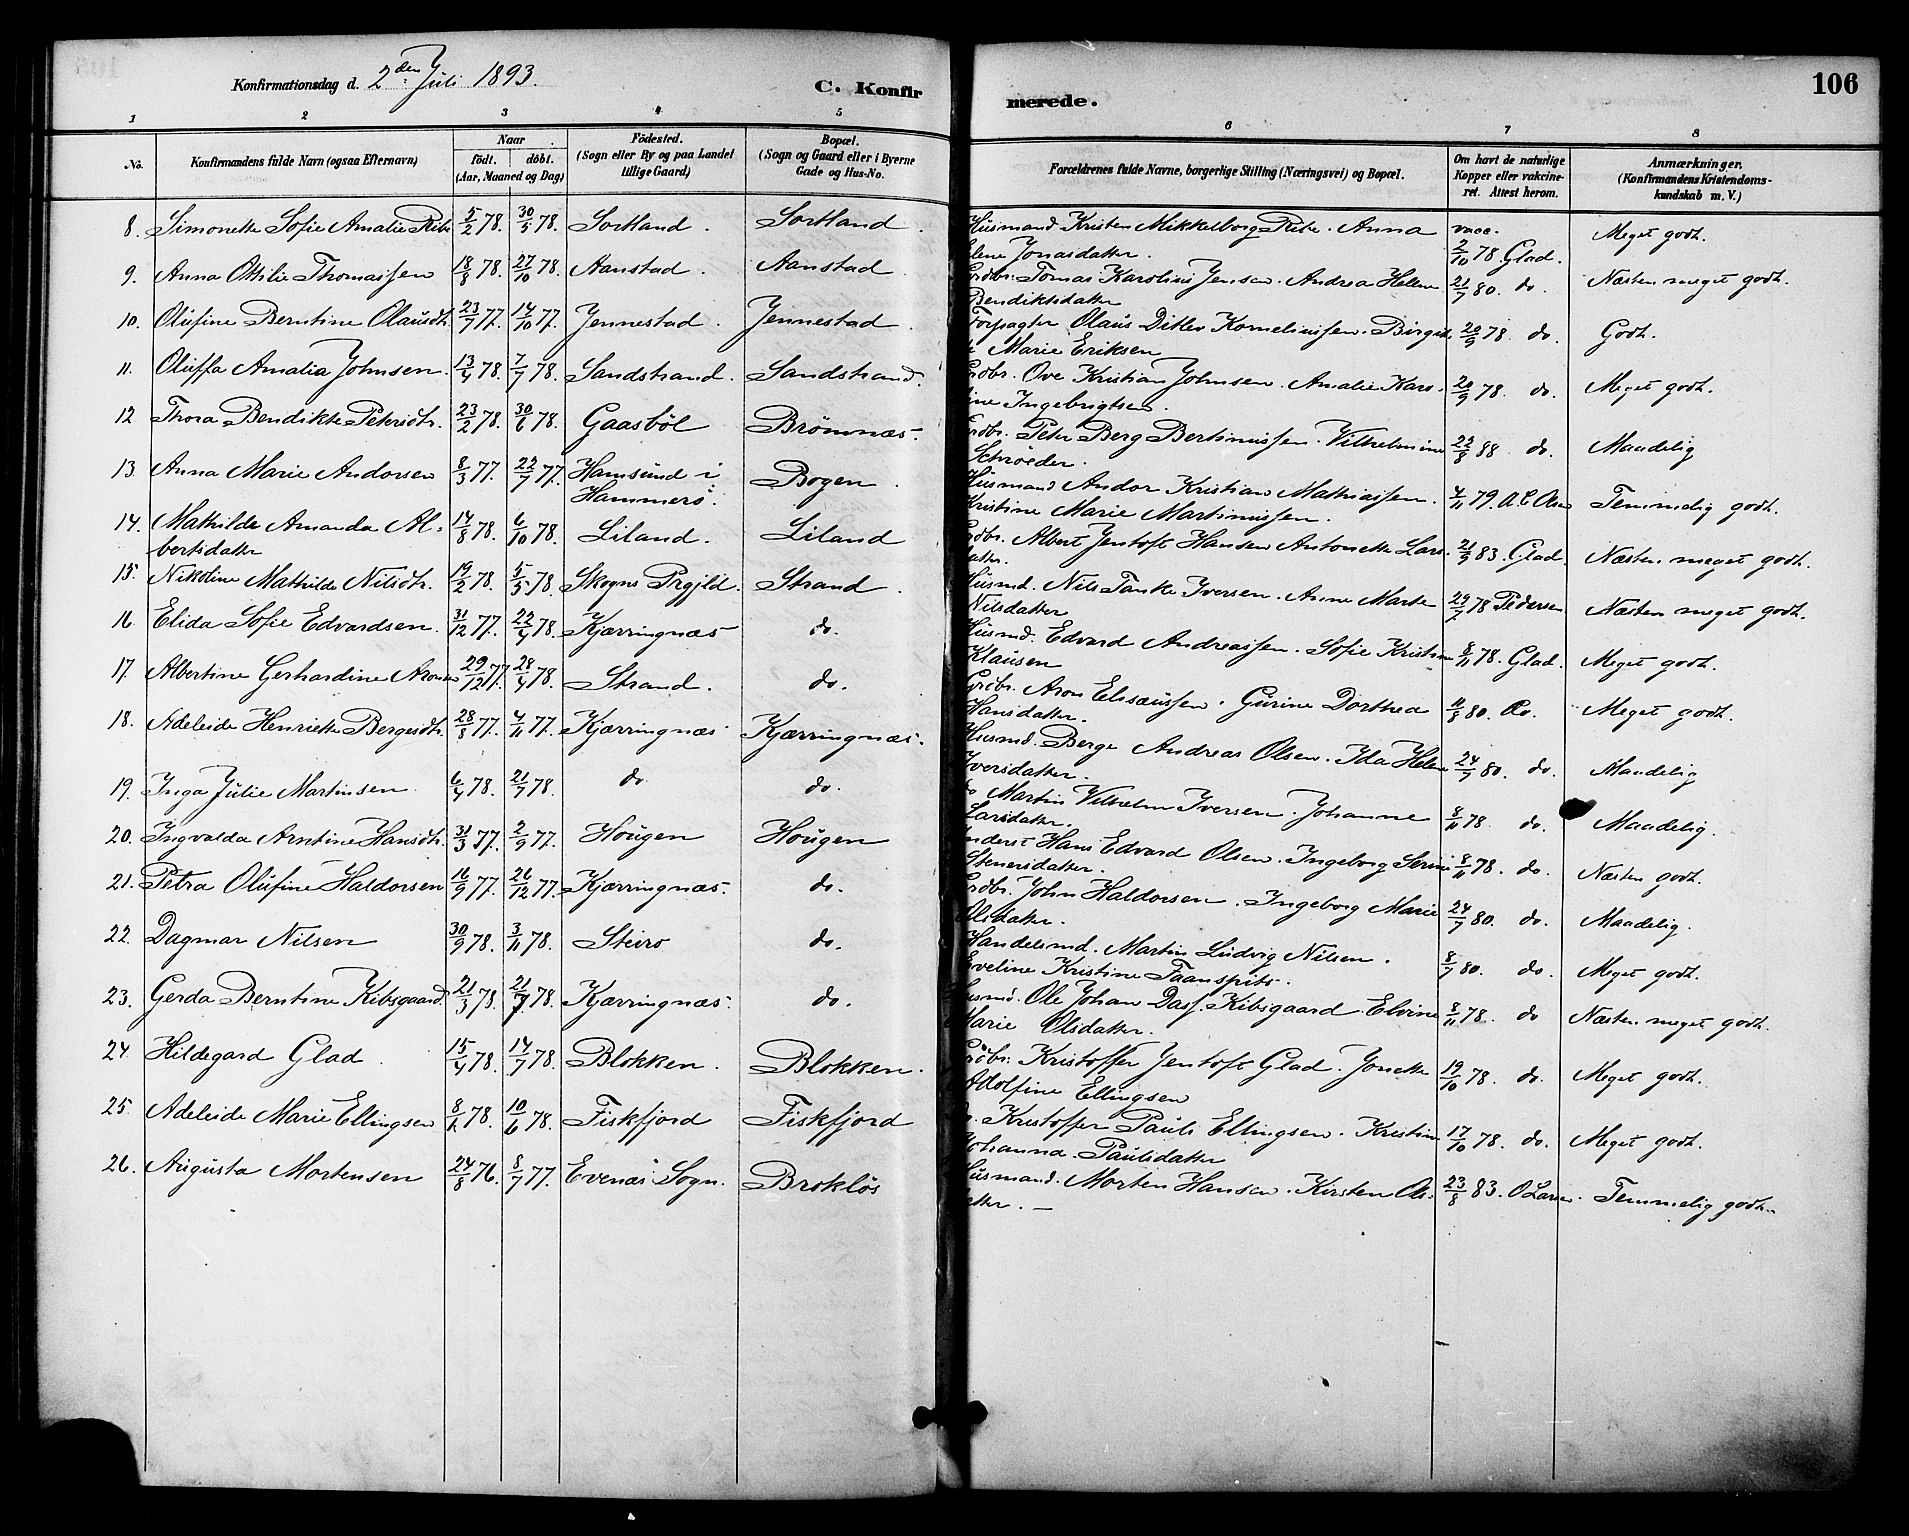 Konfirmationsdag d. 2den Juli 1893.
C. Konfirmerede.
106
1 2 3 4 5 6 7 8
No.
Konfirmandens fulde Navn (ogsaa Efternavn)
Naar
født. døbt.
(Aar, Maaned og Dag)
Födested.
(Sogn eller By og paa Landet
tillige Gaard)
Bopæl.
(Sogn og Gaard eller i Byerne
Gade og Hus-No.
Forældrenes fulde Navne, borgerlige Stilling (Næringsvei) og Bopæl.
Om havt de naturlige
Kopper eller vakcine-
ret. Attest herom.
Anmærkninger.
(Konfirmandens Kristendoms-
kundskab m. V.)
8. Simonette Sofie Amalie Ribe 5/2 78. 30/5 78. Sortland. Sortland. Husmand Kristen Mikkelborg Ribe. Anna vacc. Meget godt.
Jonasdatter. 2/10 78. Glad.
9. Anna Ottilie Thomassen 18/8 78. 27/10 78. Aanstad. Aanstad Tomas Karolius Jensen. Andrea Helene 21/7 80. do. Næsten meget godt.
Bendiktsdatter
10. Olufine Berntine Olausdtr. 23/7 77. 14/10 77. Jennestad. Jennestad. Forpagter Olaus Ditlev Korneliussen. Birgit 20/9 78. do. Godt.
Marie Eriksen
11. Oluffa Amalia Johnsen. 13/4 78. 7/7 78. Sandstrand. Sandstrand. Ove Kristian Johnsen. Amalie Karo- 20/9 78. do. Meget godt.
line Ingebrigtsen.
12 Thora Bendikte Petersdtr. 23/2 78. 30/6 78. Gaasböl Brömnæs. Peter Berg Bertinussen. Vilhelmine 22/8 88 do. Maadelig
Schrøeder.
13. Anna Marie Andorsen 8/3 77. 22/7 77. Hamsund i Bogen. Husmand Andor Kristian Mathiassen. 4/11 79. A.C. Olsen Temmelig godt.
Hammerö. Kristine Marie Martinussen.
14. Mathilde Amanda Al- 14/8 78. 6/10 78. Liland. Liland Albert Jentoft Hansen Antonette Lars- 21/9 83. Glad. Næsten meget godt.
bertsdatter
15. Nikoline Mathilde Nilsdtr. 19/2 78. 5/5 78. Skogns Prgjld. Strand. Husmd. Nils Tanke Iversen. Anne Marte 29/7 78 Pedersen Næsten meget godt.
Nilsdatter
16 Elida Sofie Edvardsen. 31/12 77. 22/4 78. Kjærringnæs do. Husmd. Edvard Andreassen. Sofie Kristine 8/11 78. Glad. Meget godt.
Klausen
17. Albertine Gerhardine Aronsen 29/12 77. 28/4 78. Strand. do. Aron Elisæussen. Gurine Dorthea 11/8 80. do. Meget godt.
Hansdatter.
18. Adeleide Henriette Bergesdtr. 28/8 77. 4/11 77. Kjærringnæs Kjærringnæs. Husmd. Berge Andreas Olsen. Ida Helene 24/7 80. do. Maadelig
Iversdatter.
19. Inga Julie Martinsen 6/4 78. 21/7 78. do do. Martin Vilhelm Iversen. Johanne 8/11 78. do. Maadelig.
Larsdatter.
20. Ingvalda Arntine Hansdtr. 31/3 77. 2/9 77. Hougen Hougen Inderst Hans Edvard Olsen. Ingeborg Serine 8/11 78. do. Næsten godt.
Stenersdatter.
21. Petra Olufine Haldorsen 16/9 77. 26/12 77. Kjærringnæs. do. John Haldorsen. Ingeborg Marie 24/7 80. do. Maadelig.
Olsdatter.
22. Dagmar Nilsen 30/9 78. 3/11 78. Steiro do. Handelsmd. Martin Ludvig Nilsen. 8/7 80. do. Meget godt.
Eveline Kristine Taanspits.
23. Gerda Berntine Kibsgaard. 21/3 78. 21/7 78. Kjærringnæs. do. Husmd. Ole Johan Dass Kibsgaard. Elvine 8/11 78. do Næsten meget godt.
Marie Olsdatter.
24. Hildegard Glad. 15/4 78. 14/7 78. Blokken. Blokken. Kristoffer Jentoft Glad. Jonette 19/10 78. do. Meget godt.
Adolfine Ellingsen
25. Adeleide Marie Ellingsen 8/2 78. 10/6 78. Fiskfjord Fiskfjord Kristoffer Pauls Ellingsen. Kristine 17/10 78. do. Meget godt.
Johanna Paulsdatter
26. Augusta Mortensen 24/8 76. 8/7 77. Evenæs Sogn. Broklös Husmand. Morten Hansen. Kirsten Ols- 23/8 83. O Larsen. Temmelig godt.
datter. —